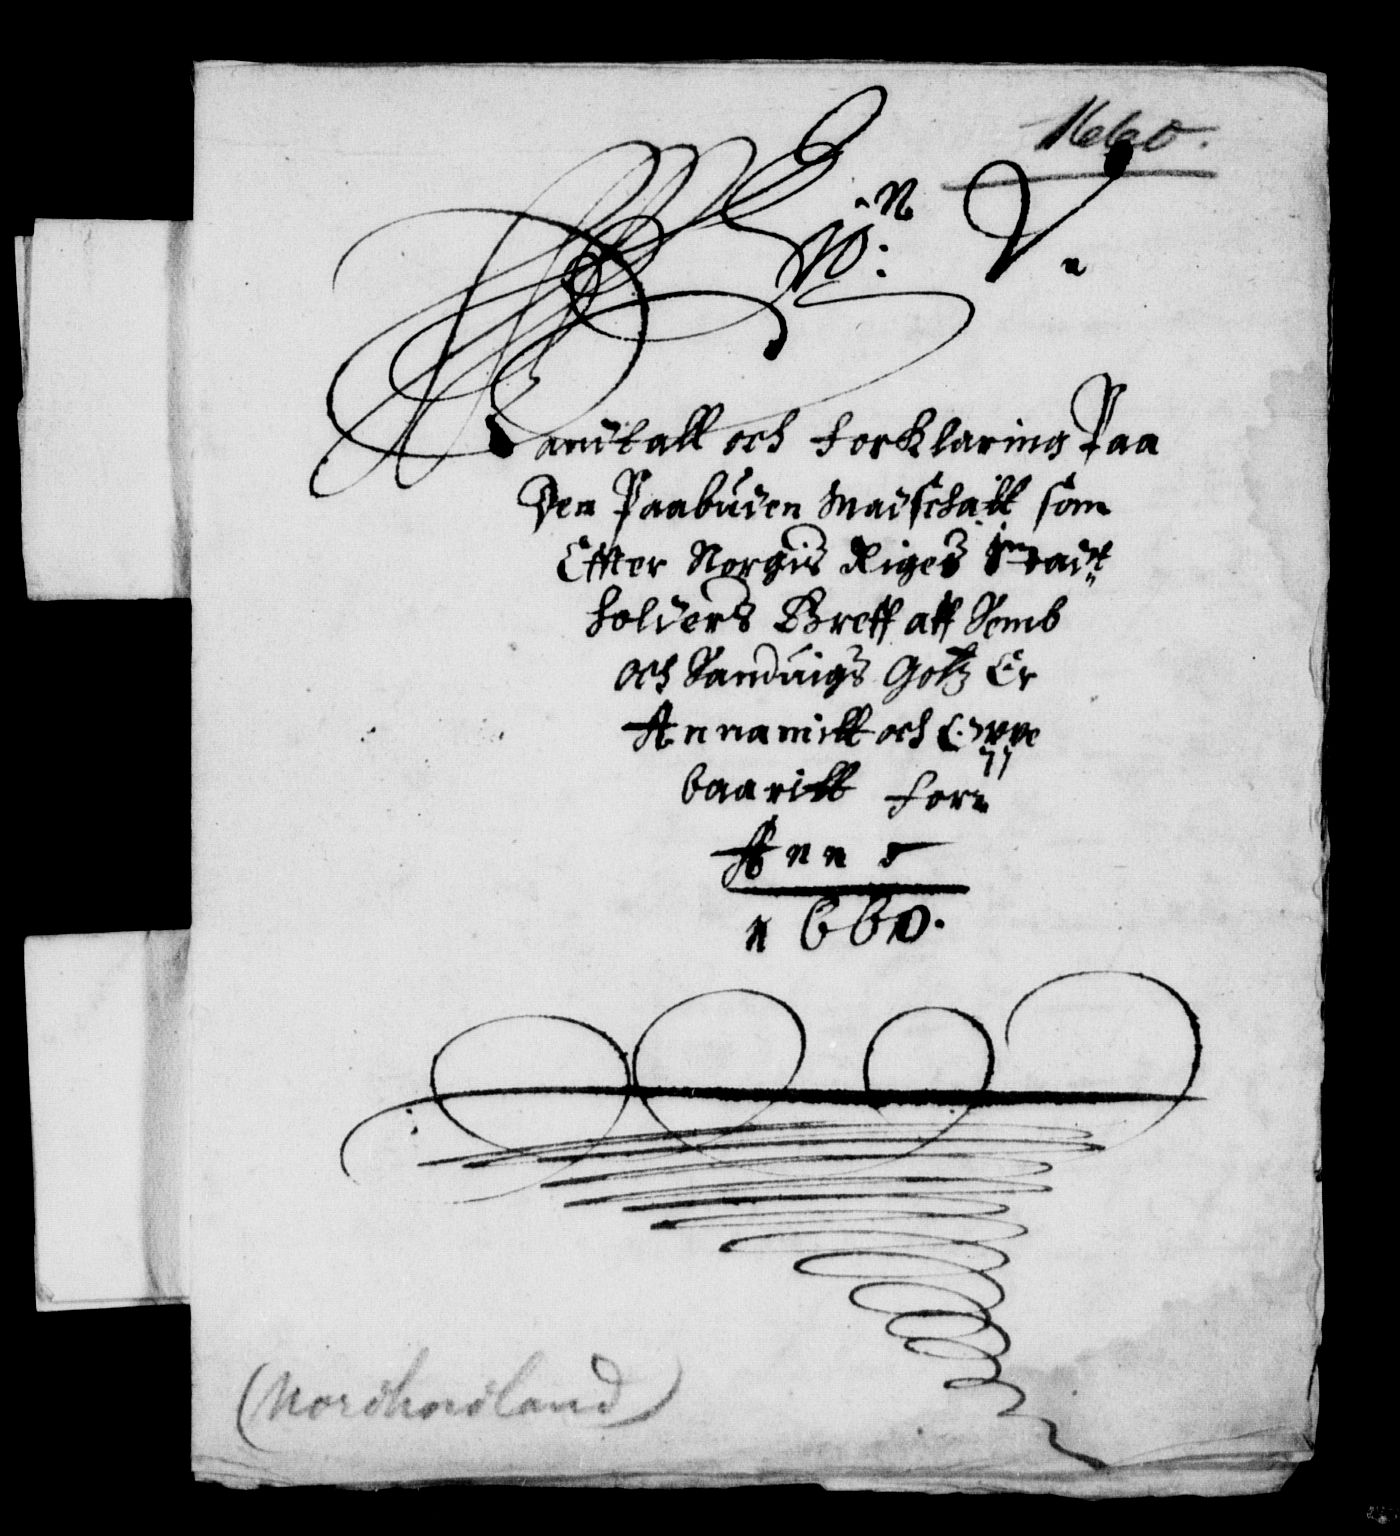 1660.
No:
Mandtall och forklaring Paa
Den Paabuden Madschatt som
Effter Norgis Riges Stadt
holders Breff aff Semb
och Sanduigs Gotz Er
Annamitt och Oppe
baaritt for
Anno
1660.
(Nordhordland)